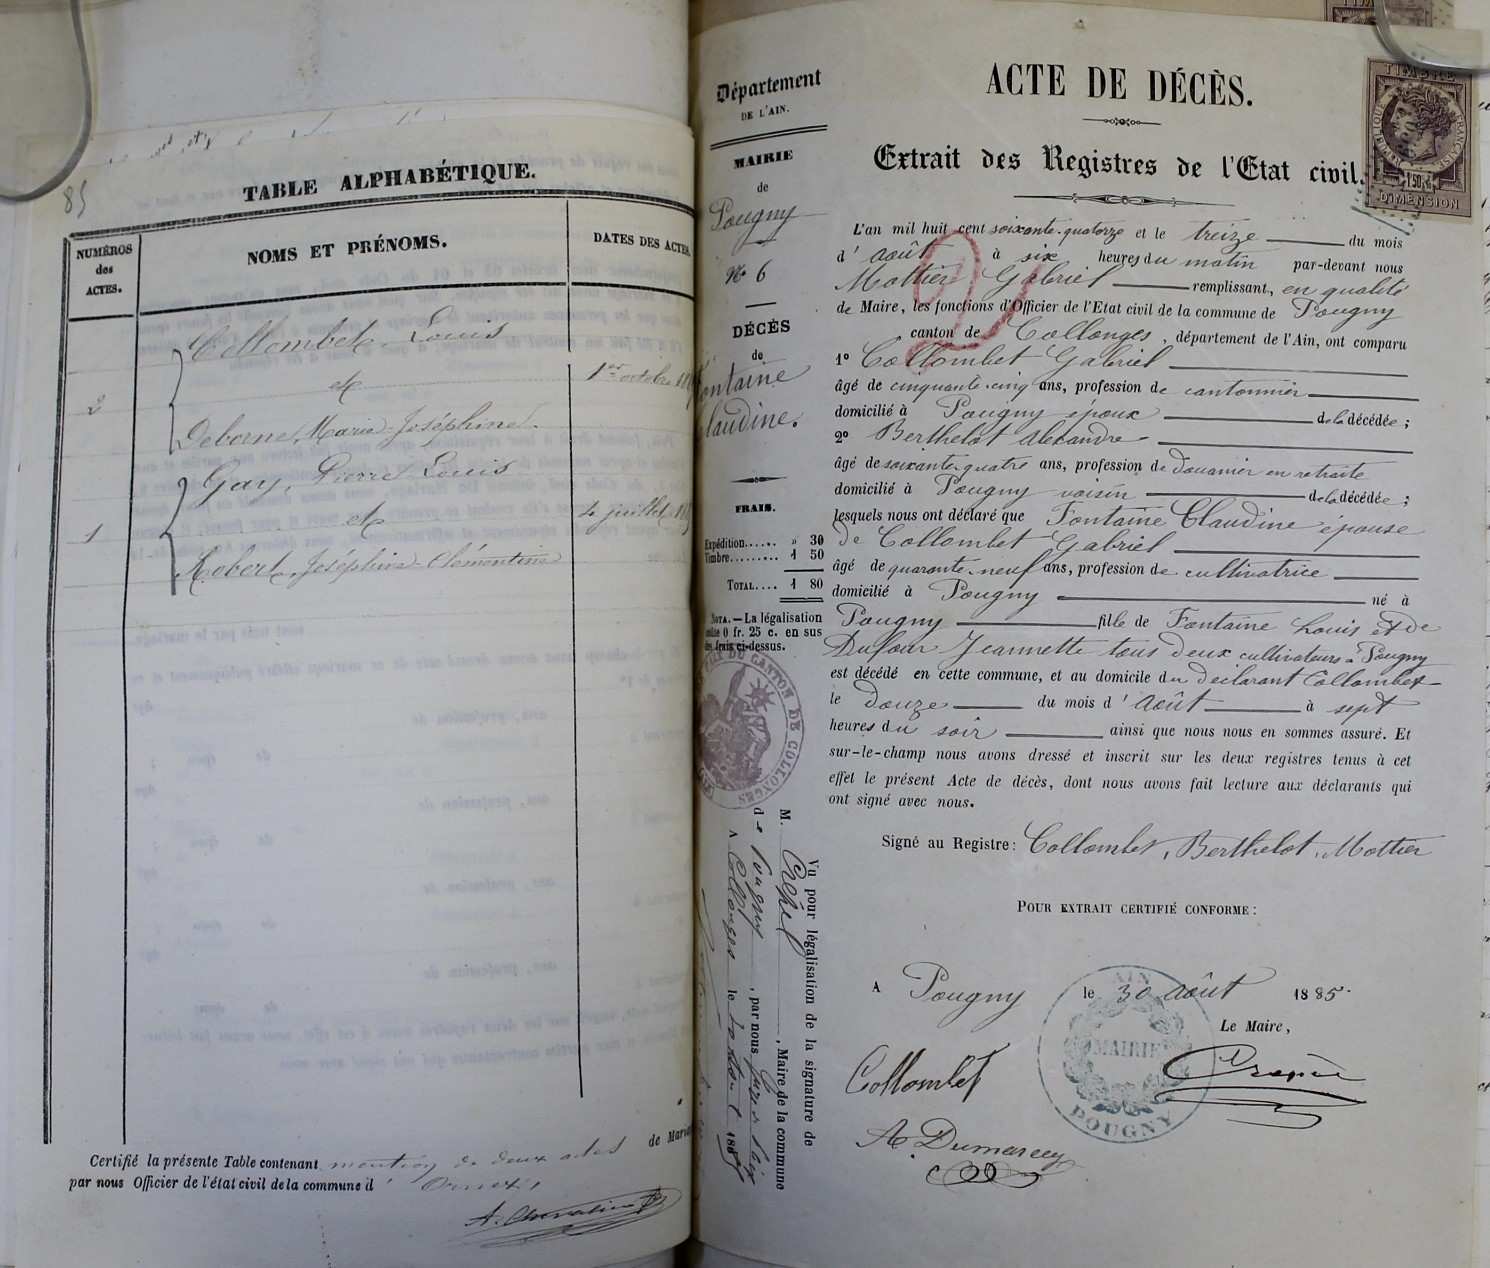 85
TABLE ALPHABÉTIQUE.
NUMÉROS des ACTES.
NOMS ET PRÉNOMS.
DATES DES ACTES.
Collombet, Louis
et
1er octobre
2
Deborne, Marie-Joséphine.
Gay, Pierre-Louis
et
4 juillet
1
Robert, Joséphine-Clémentine
Certifié la présente Table contenant mention de deux actes de Maria
par nous Officier de l'état civil de la commune d' Ornex,
Département
DE L'AIN.
MAIRIE
de
Pougny
No 6
DÉCÈS
de
Fontaine
Claudine.
FRAIS.
Expédition...... » 30
Timbre......... 1 50
TOTAL.... 1 80
NOTA. — La légalisation
0 fr. 25 c. en sus
frais ci-dessus.
DU CANTON DE COLLONGES
Vu pour légalisation de la signature de
M. Crépel, Maire de la commune
de Pougny, par nous Juge de Paix
A Collonges le
ACTE DE DÉCÈS.
Extrait des Registres de l'Etat civil.
TIMBRE
RÉPUBLIQUE FRANÇAISE
1f50c
DIMENSION
L'an mil huit cent soixante-quatorze et le treize du mois
d' août à six heures du matin par-devant nous
Mottier Gabriel remplissant, en qualité
de Maire, les fonctions d'Officier de l'Etat civil de la commune de Pougny
canton de Collonges, département de l'Ain, ont comparu
1o Collombet Gabriel
âgé de cinquante-cinq ans, profession de cantonnier
domicilié à Pougny époux de la décédée ;
2o Berthelot Alexandre
âgé de soixante-quatre ans, profession de douanier en retraite
domicilié à Pougny voisin de la décédée ;
lesquels nous ont déclaré que Fontaine Claudine épouse
de Collombet Gabriel
âgé de quarante-neuf ans, profession de cultivatrice
domicilié à Pougny né à
Pougny fille de Fontaine Louis et de
Dufour Jeannette tous deux cultivateurs à Pougny
est décédé en cette commune, et au domicile du déclarant Collombet
le douze du mois d' août à sept
heures du soir ainsi que nous nous en sommes assuré. Et
sur-le-champ nous avons dressé et inscrit sur les deux registres tenus à cet
effet le présent Acte de décès, dont nous avons fait lecture aux déclarants qui
ont signé avec nous.
Signé au Registre : Collombet, Berthelot, Mottier
POUR EXTRAIT CERTIFIÉ CONFORME :
A Pougny le 30 août 1885.
Le Maire,
AIN
MAIRIE
POUGNY
Collombet
A. Dumarcey